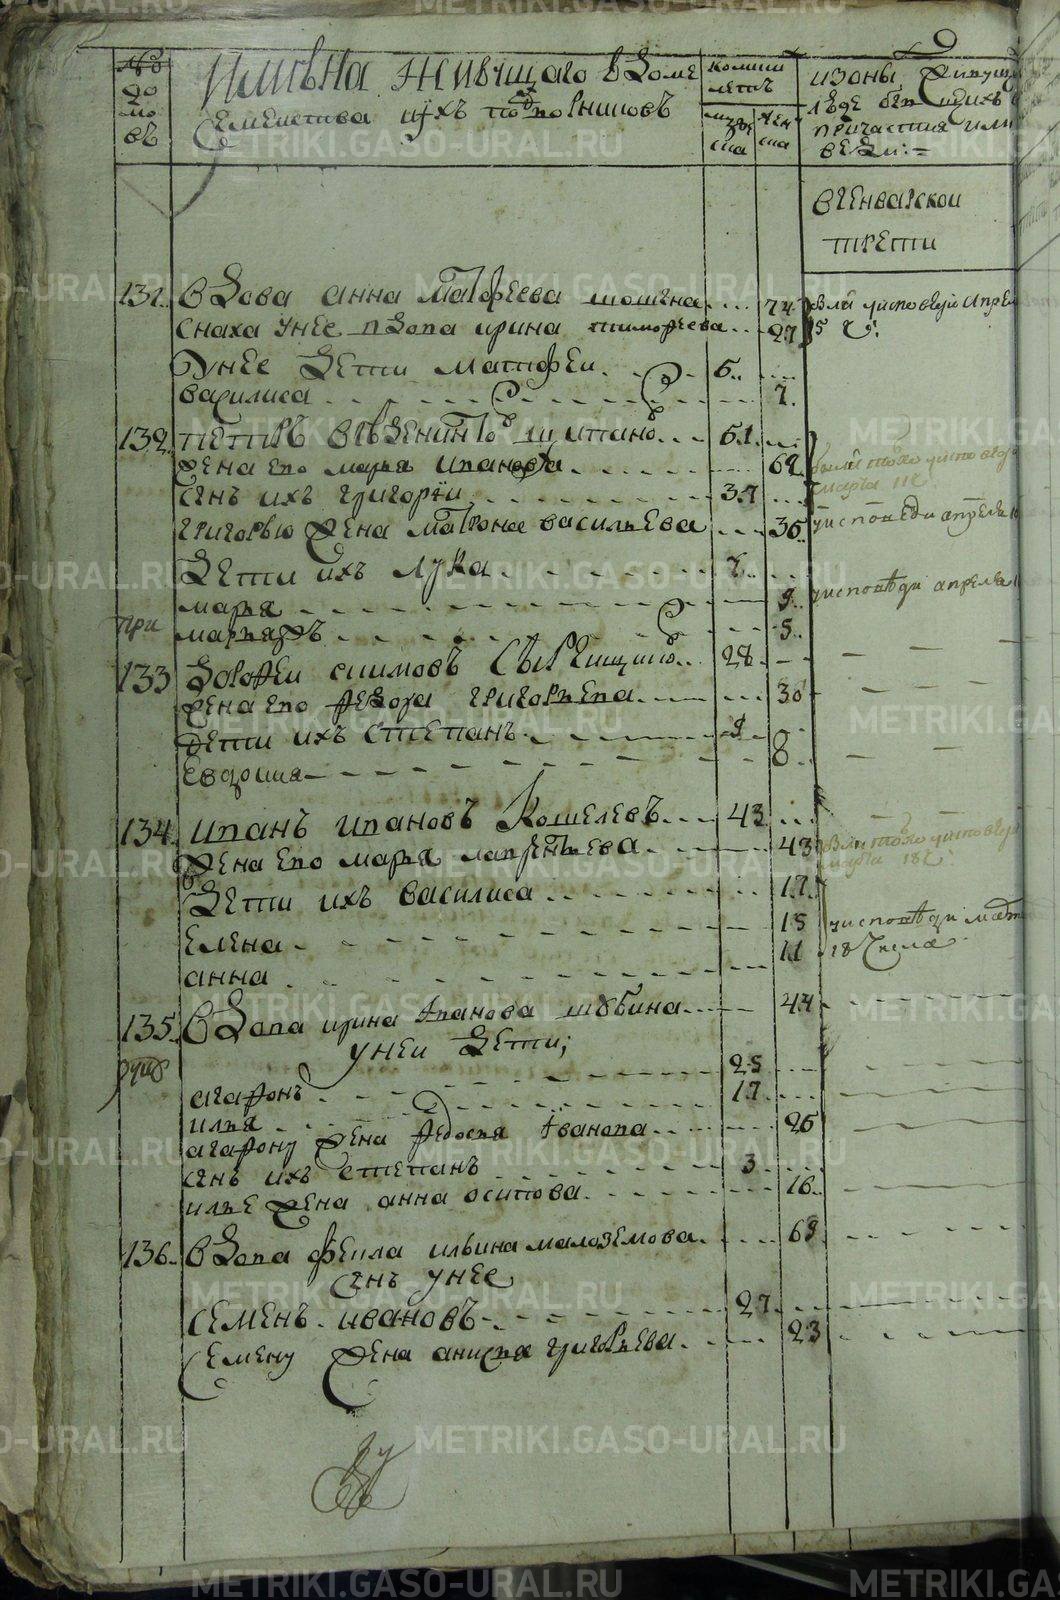 №
до
мо
въ
имѣна живущаго в доме
семеиства ихъ подворниковъ
коликі
летъ
мужеска
женска
изоны живущихъ
где были ... ихъ
причастия или
везли:=
в генварской
трети
131. вдова анна матфеева шошина 74.
снаха у нее вдова ирина тимофеева 27
у нее дети матфеи 6
василиса 7.
были у исповеди апреля
5 ч:
132. петръ авденинъ 61
жена его марья иванова 62
были тоже у исповеди
марта 11 ч
сынъ ихъ григореи 37
григорью жена матрона васильева 36
у исповеди апреля
дети ихъ лука 7.
марья 9
у исповеди апреля
марьяжъ 5.
при
133 дорофеи екимовъ 28
жена его федора григорьева 30
дети ихъ степанъ 9
евдокия 8
134. иванъ ивановъ Кошелевъ 43
жена его марья лаврентьева 43
были тоже у исповеди
марта 18 ч.
дети ихъ василиса 17
елена 15
анна 11
у исповеди марта
18 числа
135. вдова ирина иванова шубина 44
у неи дети;
агафонъ 25
илья 17.
агафону жена федосья иванова 26
сынъ ихъ степанъ 3
илье жена анна осипова 16.
136. вдова фекла ильина малоземова 69
сынъ у нее
семенъ ивановъ 27
семену жена анисья григорьева 23
METRIKI.GASO-URAL.RU